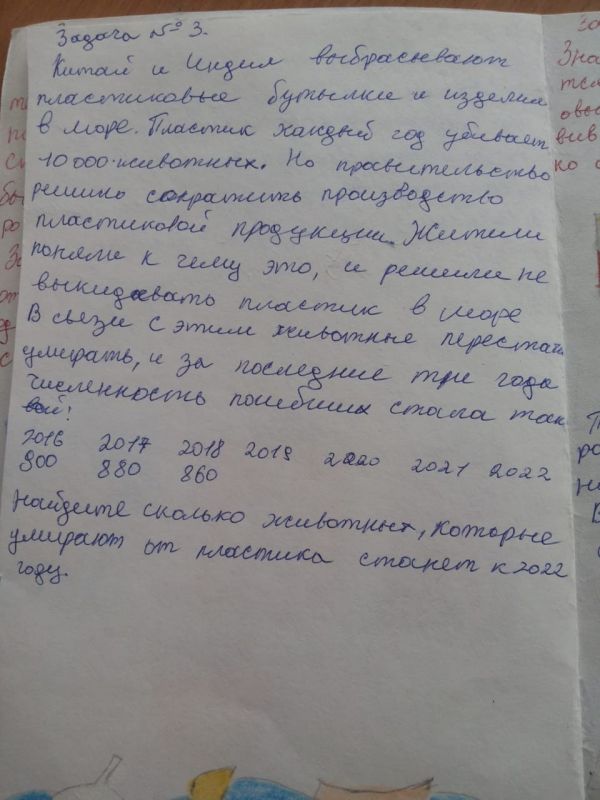 Задача № 3.
Китай и Индия выбрасывают
пластиковые бутылки и изделия
в море. Пластик каждый год убивает
10 000 животных. Но правительство
решило сократить производство
пластиковой продукции. Жители
поняли к чему это, и решили не
выкидовать пластик в море
В связи с этим животные перестали
умирать, и за последние три года
численность погибших стала так
вой!
2016 2017 2018 2019 2020 2021 2022
900 880 860
Найдите сколько животных, которые
умирают от пластика станет к 2022
году.